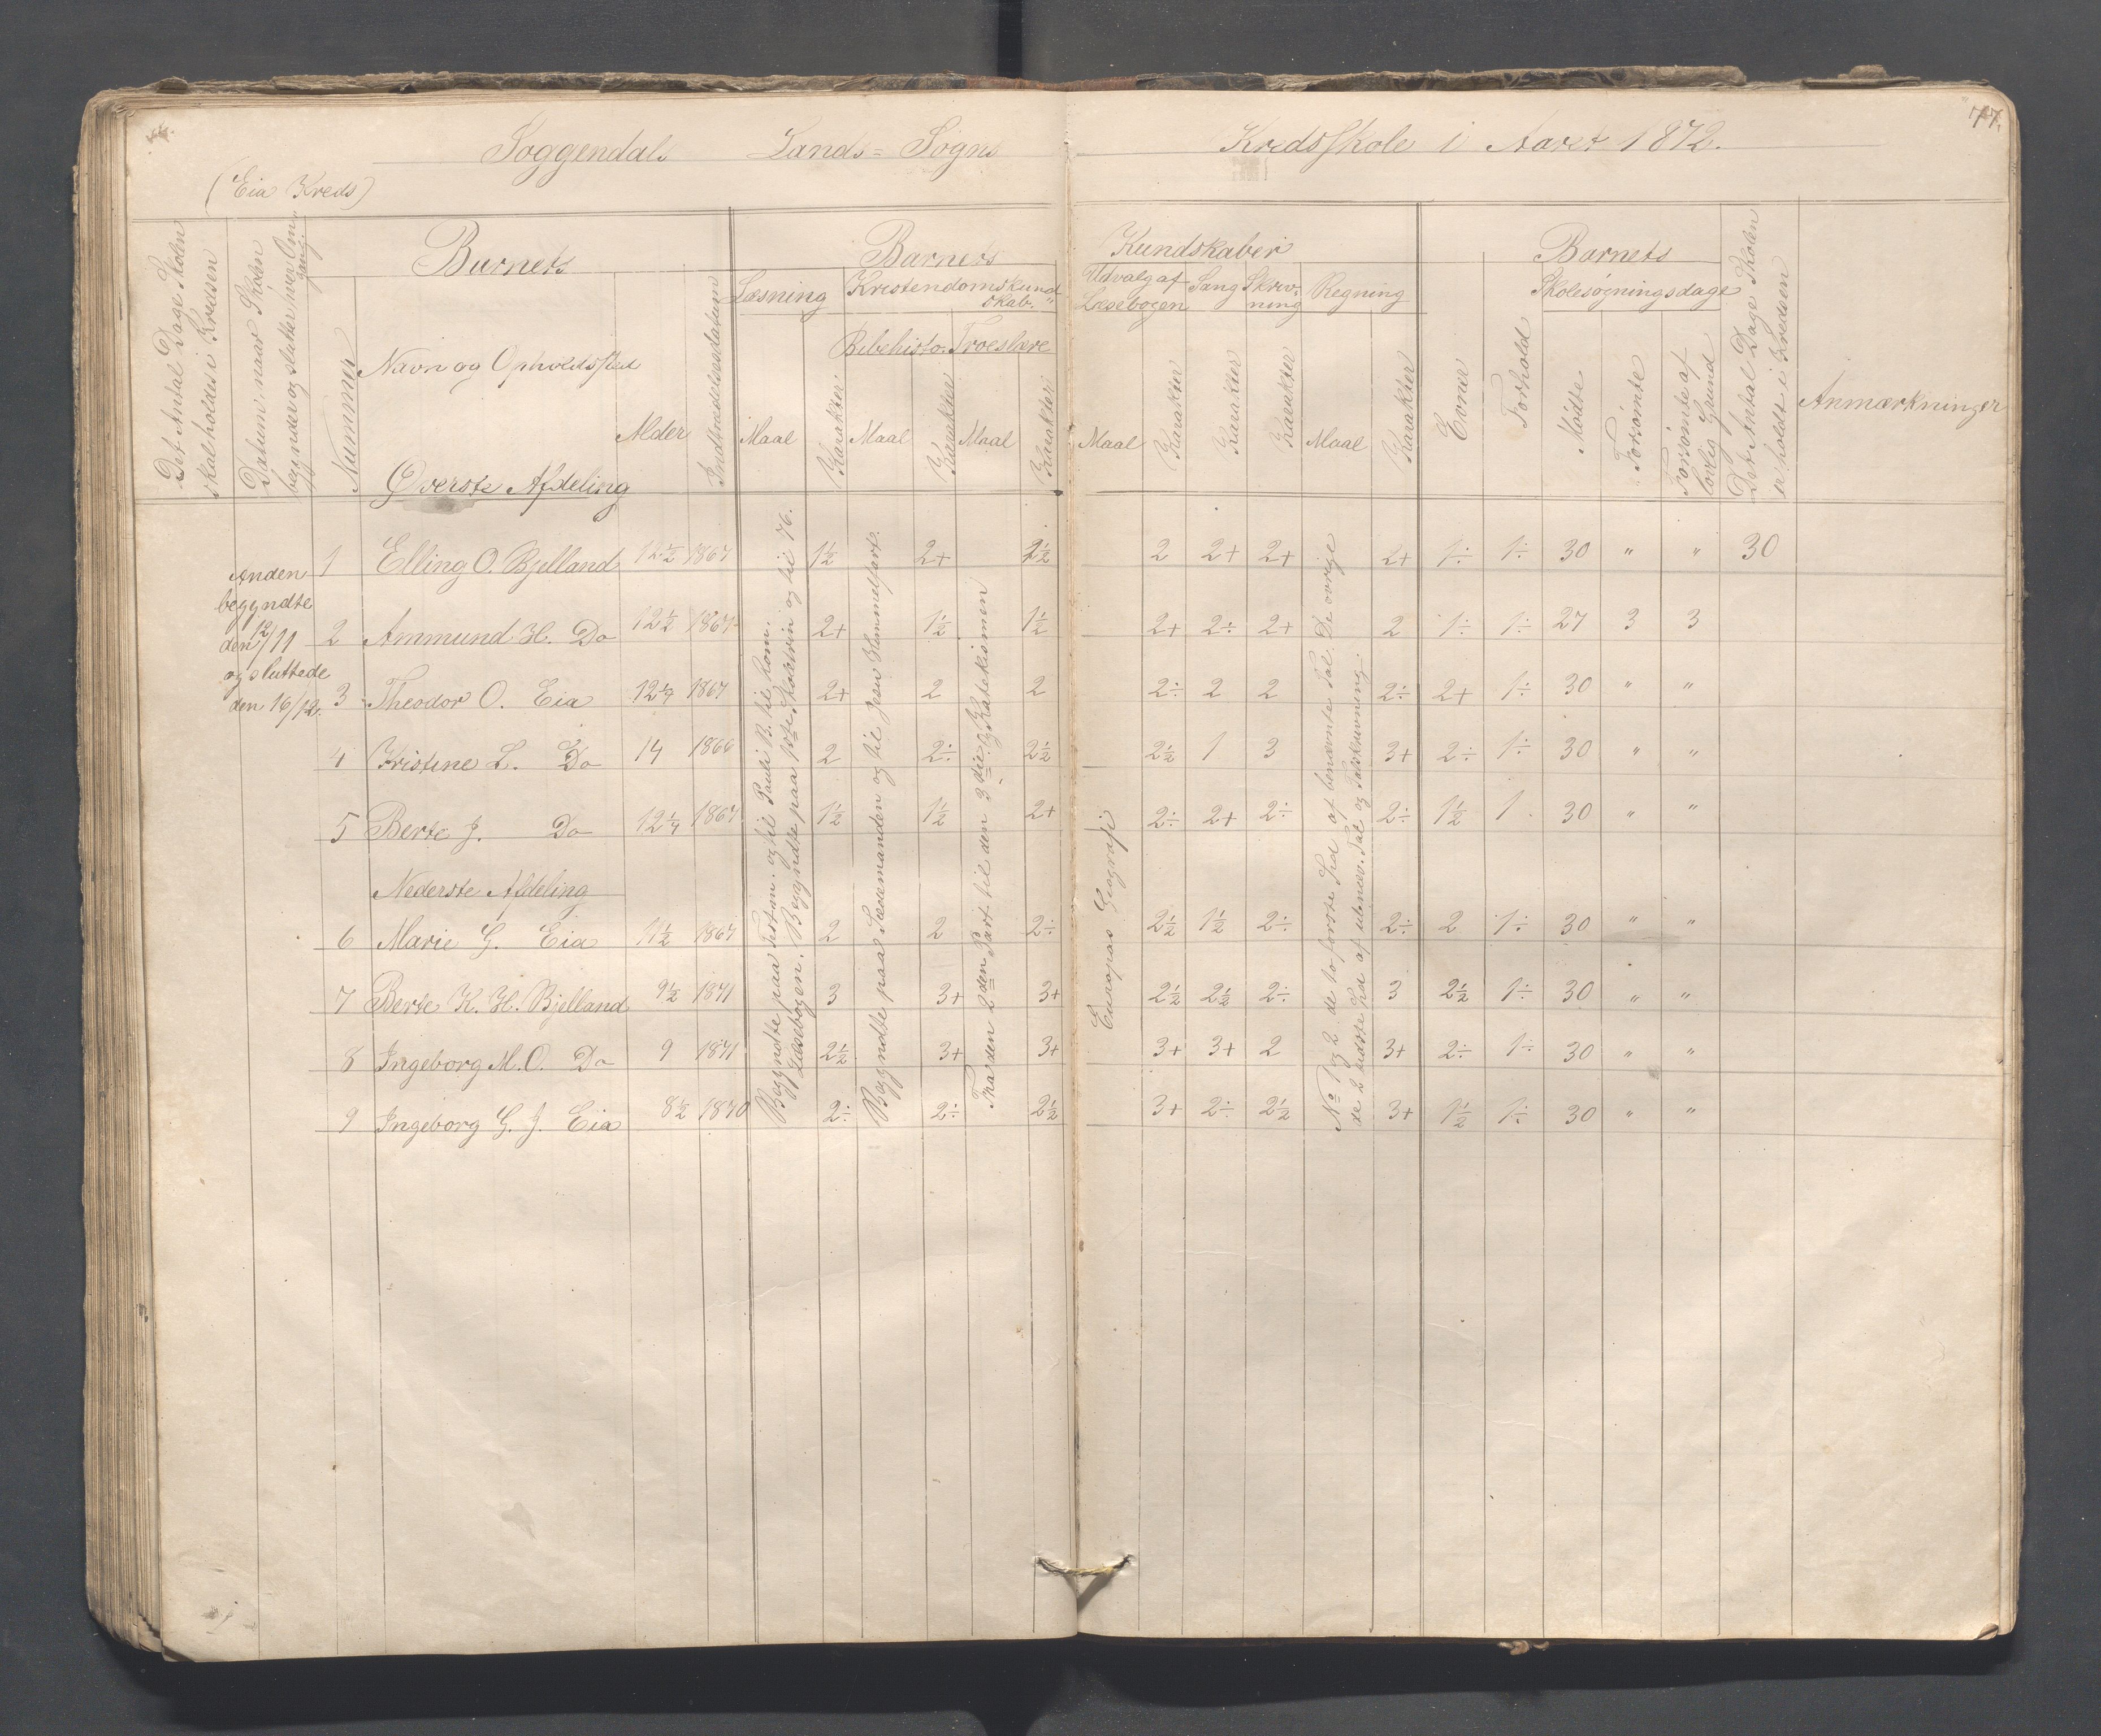 77.
Soggendals Lands=Sogns Kredsskole i Aaret 1872.
(Eia Kreds)
Det Antal Dage Skolen skal holdes i Kredsen
Datum, naar Skolen begynder og slutter hver Omgang.
Barnets
Nummer
Navn og Opholdssted
Alder
Indtrædelsesdatum
Barnets Kundskaber
Læsning
Kristendomskundskab.
Bibelhisto. Troeslære
Maal Karakter Maal Karakter Maal Karakter
Udvalg af Læsebogen
Sang
Skrivning
Regning
Maal Karakter Karakter Karakter Maal Karakter
Evner
Forhold
Barnets
Skolesøgningsdage
Mødte
Forsømte
Forsømte af lovlig Grund
Det Antal Dage Skolen er holdt i Kredsen
Anmærkninger
Øverste Afdeling
Anden
begyndte
den 12/11
og sluttede
den 16/12.
1 Elling O. Bjelland 12½ 1867 1½ 2+ 2½ 2 2+ 2+ 2+ 1÷ 1÷ 30 " " 30
2 Ammund H. Do 12½ 1867 2+ 1½ 1½ 2+ 2÷ 2+ 2 1÷ 1÷ 27 3 3
3 Theodor O. Eia 12¼ 1867 2+ 2 2 2÷ 2 2 2÷ 2+ 1÷ 30 " "
4 Kristine L. Do 14 1866 2 2÷ 2½ 2½ 1 3 3+ 2÷ 1÷ 30 " "
5 Berte J. Do 12¼ 1867 1½ 1½ 2+ 2÷ 2+ 2÷ 2÷ 1½ 1 30 " "
Nederste Afdeling
6 Marie G. Eia 11½ 1867 2 2 2÷ 2½ 1½ 2÷ 2÷ 2 1÷ 30 " "
7 Berte K. H. Bjelland 9½ 1871 3 3+ 3+ 2½ 2½ 2÷ 3 2½ 1÷ 30 " "
8 Ingeborg M. O. Do 9 1871 2½ 3+ 3+ 3+ 3+ 2 3+ 2÷ 1÷ 30 " "
9 Ingeborg G. J. Eia 8½ 1870 2÷ 2÷ 2½ 3+ 2÷ 2½ 3+ 1½ 1÷ 30 " "
Begyndte paa Testm. og til Pauli B. til Rom.
Læsebogen. Begyndte paa og til 76.
Begyndte paa Sædemanden og til Jesu Himmelfart.
Fra den 2den Part til den 3die og Katekismen
Europas Geografi
No 1 og 2 de to første Sed af benævnte Tal. De øvrige
de 2 sidste Sed af ubenæv. Tal og Talskrivning.